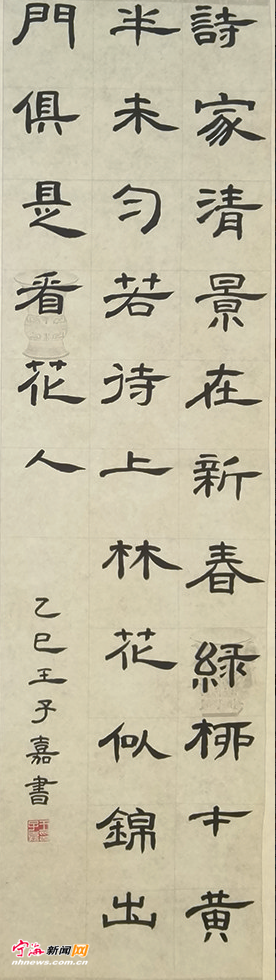 詩家清景在新春綠柳才黃
半未勻若待上林花似錦出
門俱是看花人
乙巳王子嘉書
宁海新闻网
www.nhnews.com.cn